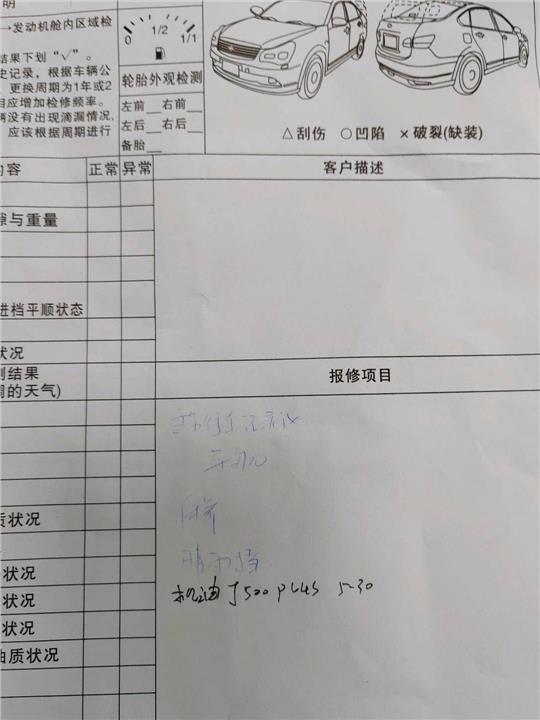 明
→发动机舱内区域检
结果下划“√”。
史记录,根据车辆公
更换周期为1年或2
相应增加检修频率。
辆没有出现滴漏情况,
应该根据周期进行
0 1/2 1/1
轮胎外观检测
左前__右前__
左后__右后__
备胎__
△刮伤 ○凹陷 ×破裂(缺装)
内容 正常 异常 客户描述
隙与重量
进档平顺状态
状况
测结果
周的天气)
报修项目
质状况
状况
晴雨挡
状况
机油 J500 PLUS 5-30
状况
油质状况